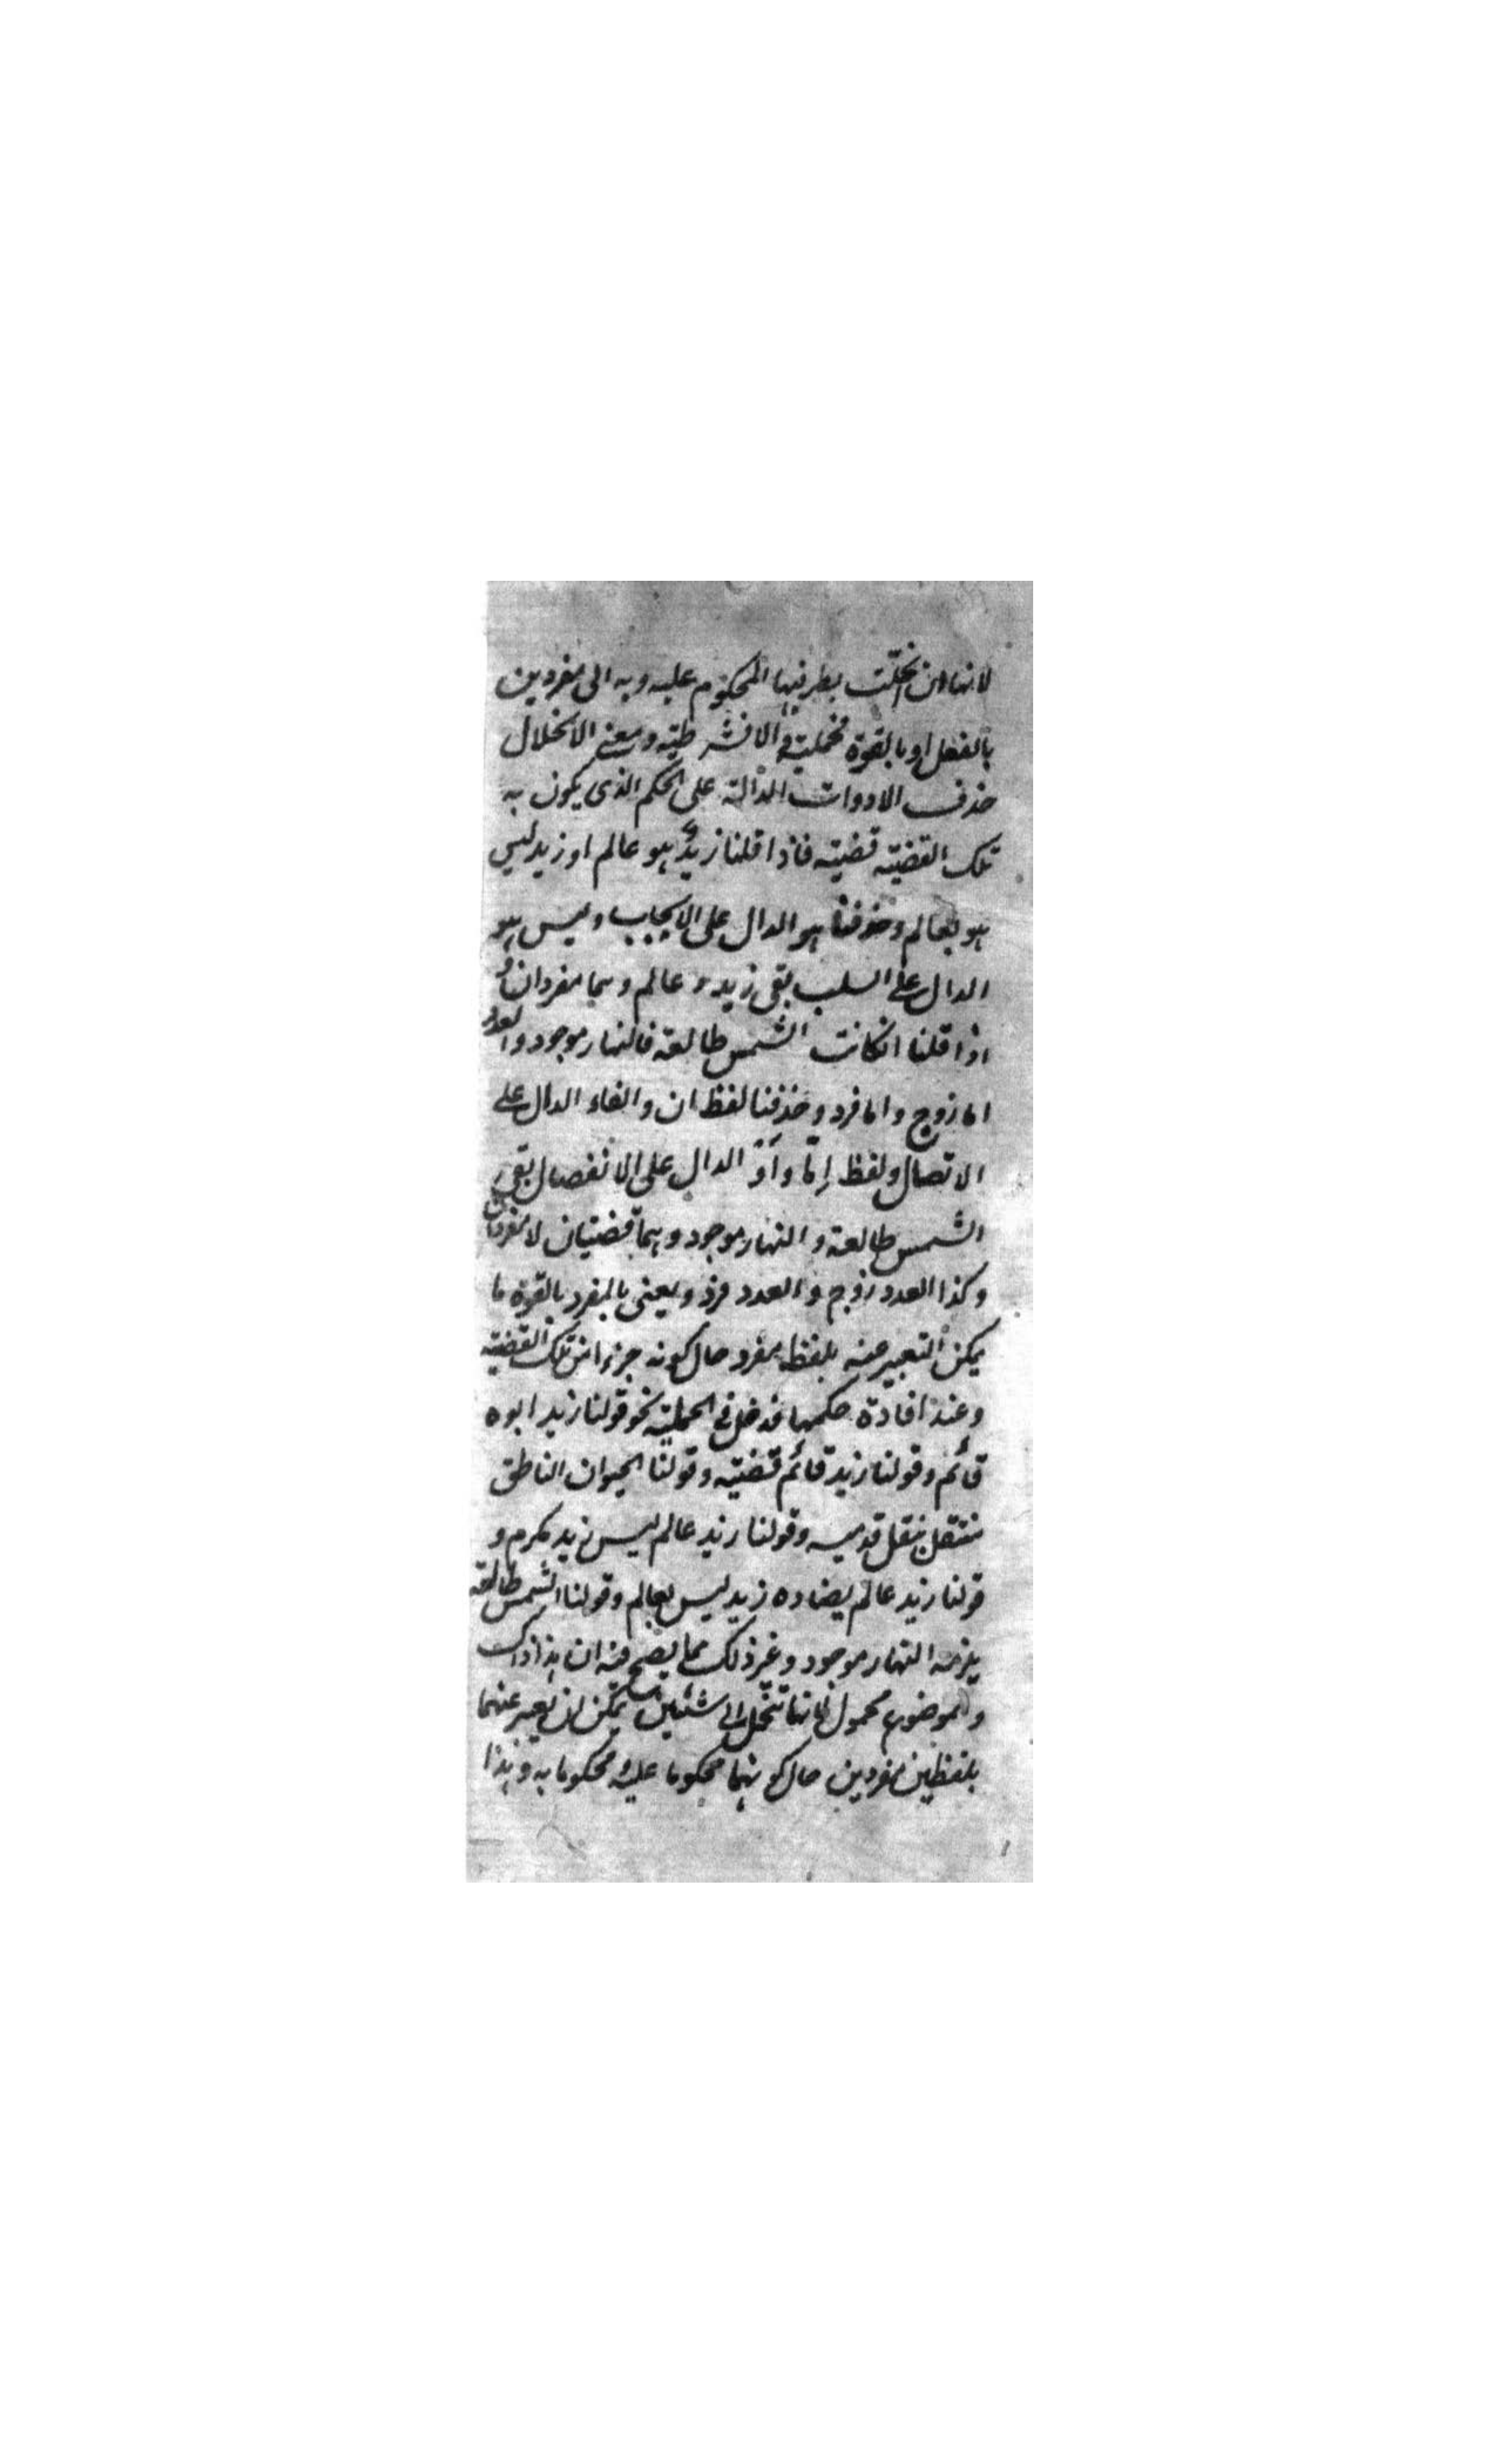 لانها ان انحلّت بطرفيها المحكوم عليه وبه الى مفردين
بالفعل او بالقوة فحملية والا فشرطية ومعنى الانحلال
حذف الادوات الدالة على الحكم الذى يكون به
تلك القضية قضية فاذا قلنا زيدٌ هو عالم او زيد ليس
هو بعالم وحذفنا هو الدال على الايجاب وليس هو
الدال على السلب بقى زيد و عالم وهما مفردان و
اذا قلنا انكانت الشمس طالعة فالنهار موجود والعدد
اما زوج واما فرد وحذفنا لفظ ان والفاء الدال على
الاتصال ولفظ اِمّا وأوْ الدال على الانفصال بقى
الشمس طالعة و النهار موجود وهما قضيتان لا مفردان
وكذا العدد زوج و العدد فرد ويعنى بالمفرد بالقوة ما
يمكن التعبير عنه بلفظ مفرد حال كونه جزءا من تلك القضية
وعند افادة حكمها فدخل فى الحملية نحو قولنا زيد ابوه
قائم وقولنا زيد قائم قضية وقولنا الحيوان الناطق
منتقل بنقل قدميه وقولنا زيد عالم ليس زيد مكرم و
قولنا زيد عالم يضاده زيد ليس بعالم وقولنا الشمس طالعة
يلزمه النهار موجود وغير ذلك مما يصح فيه ان هذا ذاك
والموضوع محمول لانها تنحل الى شئين يمكن ان يعبر عنهما
بلفظين مفردين حال كونهما محكوما عليه ومحكوما به وهذا